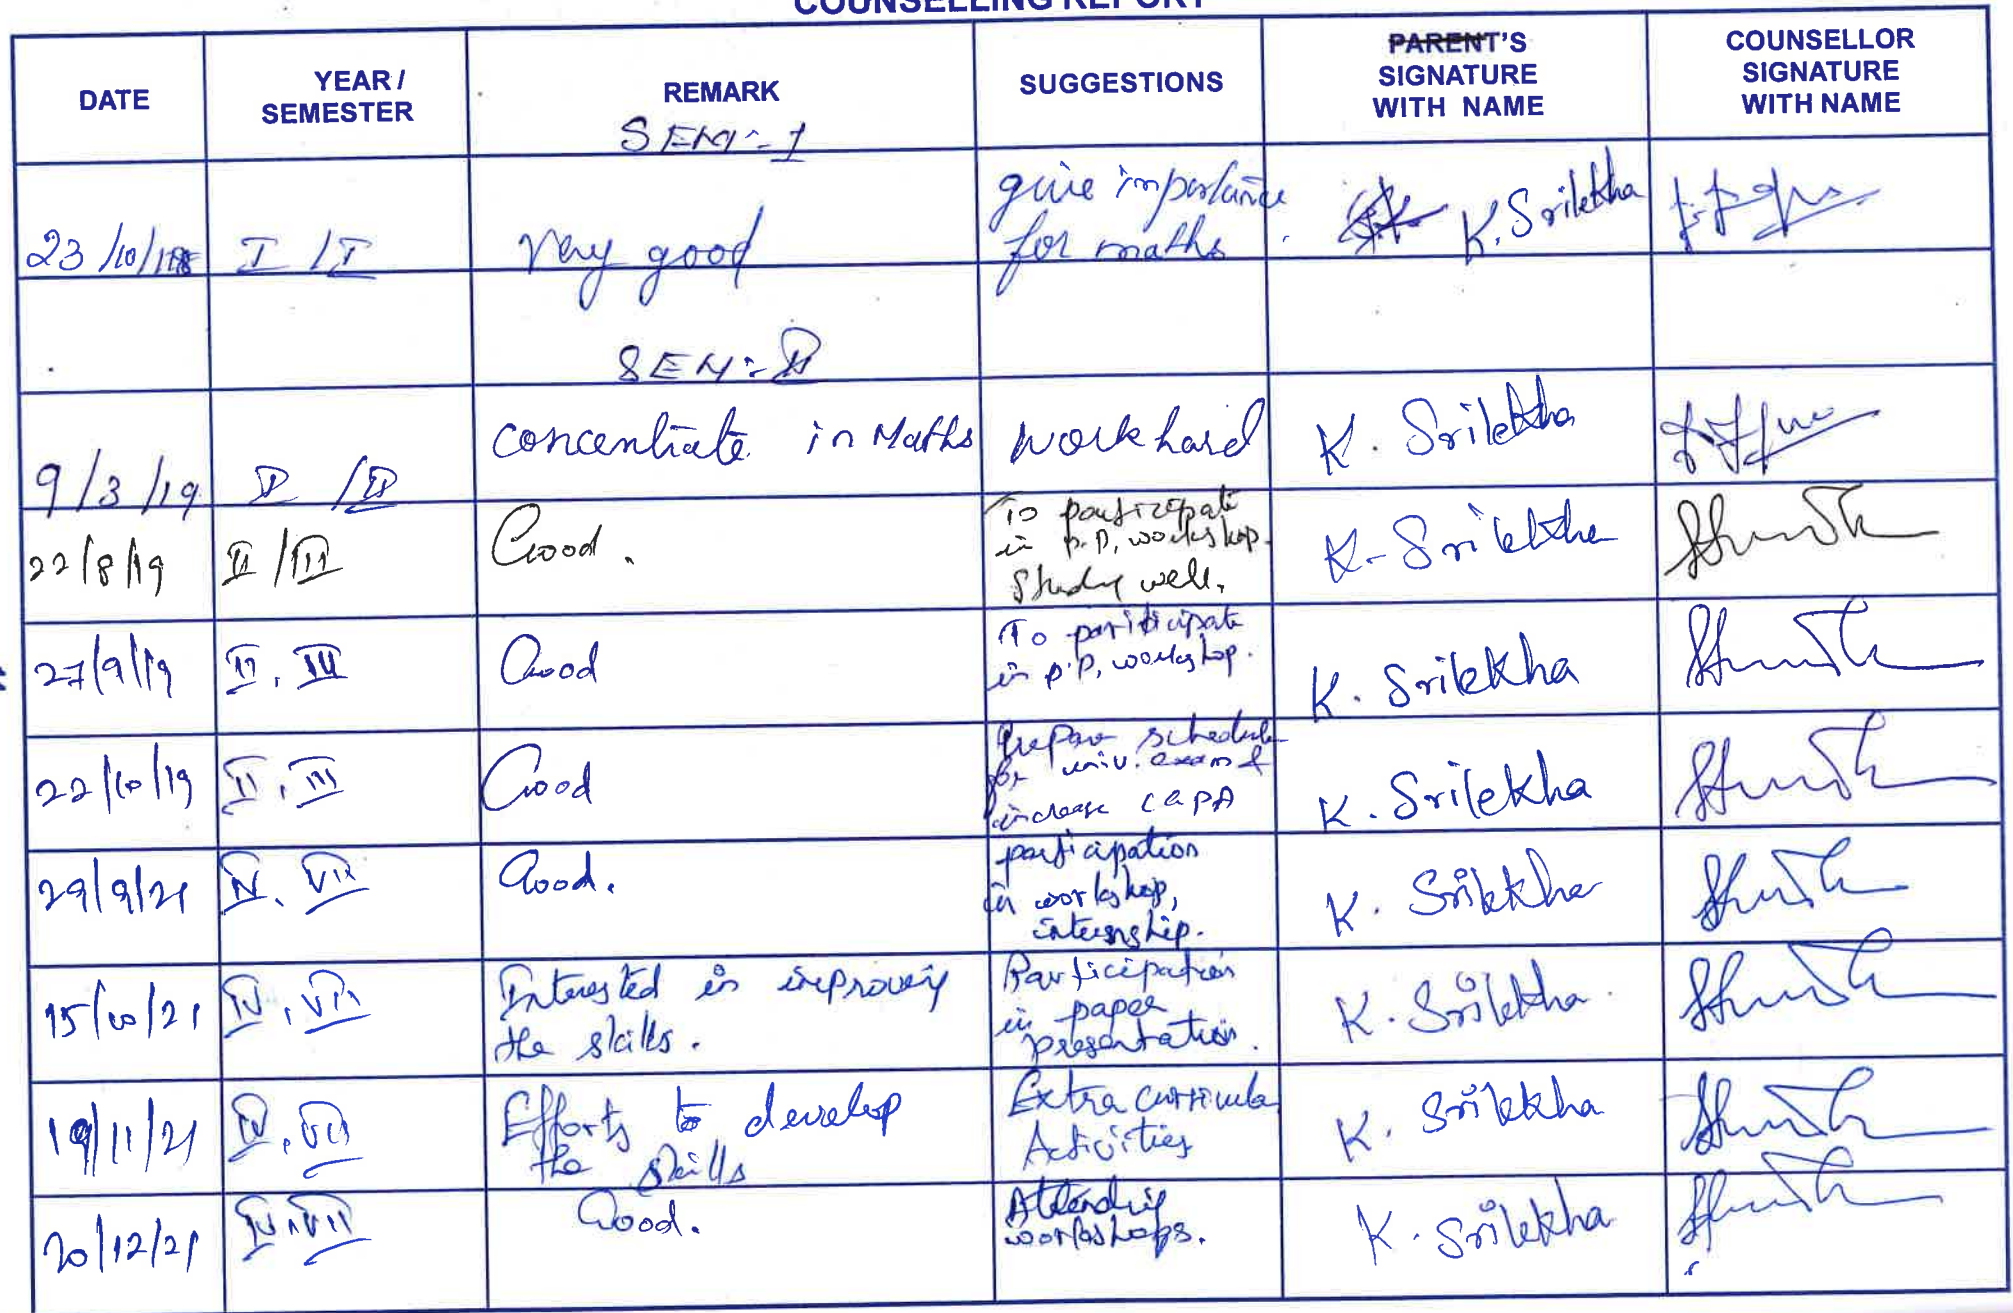 COUNSELLING REPORT
DATE
YEAR /
SEMESTER
REMARK
SUGGESTIONS
PARENT'S
SIGNATURE
WITH NAME
COUNSELLOR
SIGNATURE
WITH NAME
SEM:- I
23/10/18
I / I
Very good
give importance
for maths
K. Srilekha
SEM:- II
9/3/19
II / II
concentrate in Maths
work hard
K. Srilekha
22/8/19
II / III
Good.
To participate
in P.P, workshop.
Study well.
K. Srilekha
27/9/19
II, III
Good
To participate
in P.P, workshop.
K. Srilekha
22/10/19
II, III
Good
Prepare schedule
for univ. exam &
increase CGPA
K. Srilekha
29/9/21
IV, VII
Good.
participation
in workshop,
internship.
K. Srilekha
15/10/21
IV, VII
Interested in improving
the skills.
Participation
in paper
presentation.
K. Srilekha
19/11/21
IV, VII
Efforts to develop
the skills
Extra curricula
Activities
K. Srilekha
20/12/21
IV, VII
Good.
Attending
workshops.
K. Srilekha